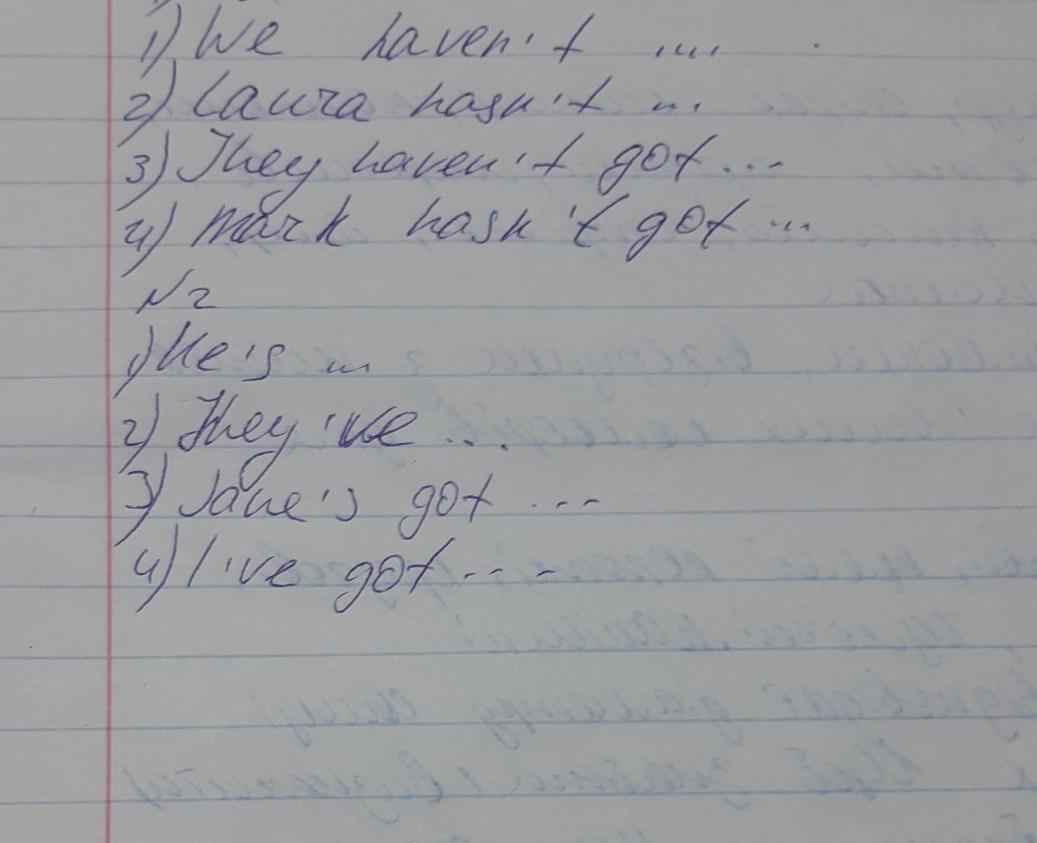 1) We haven't ....
2) Laura hasn't ...
3) They haven't got ...
4) Mark hasn't got ...
N2
1) He's ...
2) They've ...
3) Jane's got ...
4) I've got ---